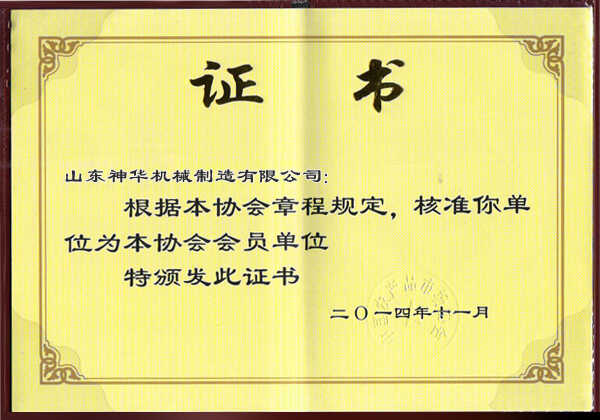 证书
山东神华机械制造有限公司：
根据本协会章程规定，核准你单
位为本协会会员单位
特颁发此证书
二〇一四年十一月